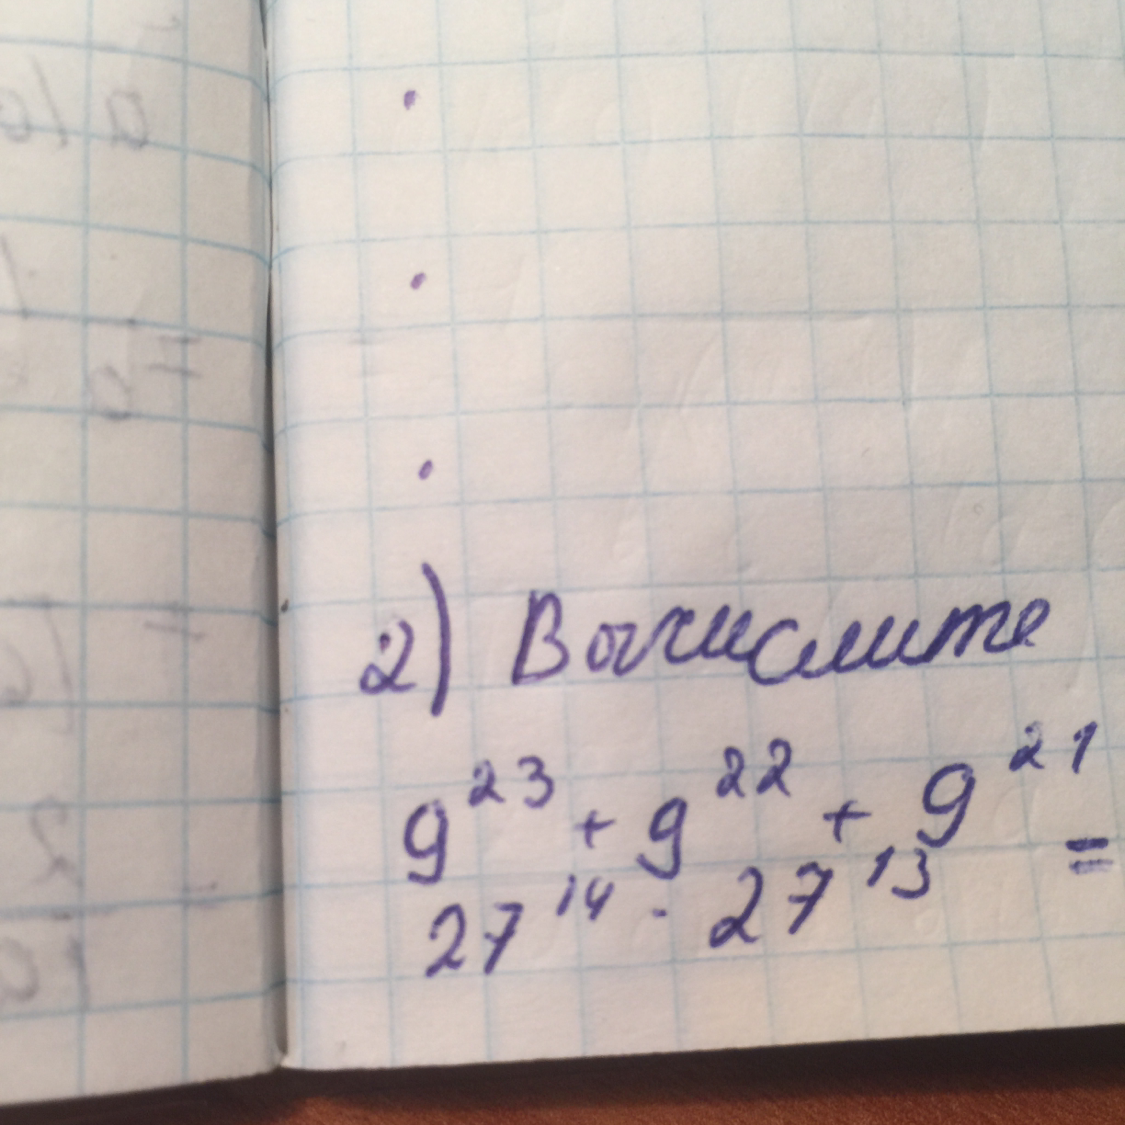 2) Вычислите
9²³ + 9²² + 9²¹
27¹⁴ · 27¹³ =